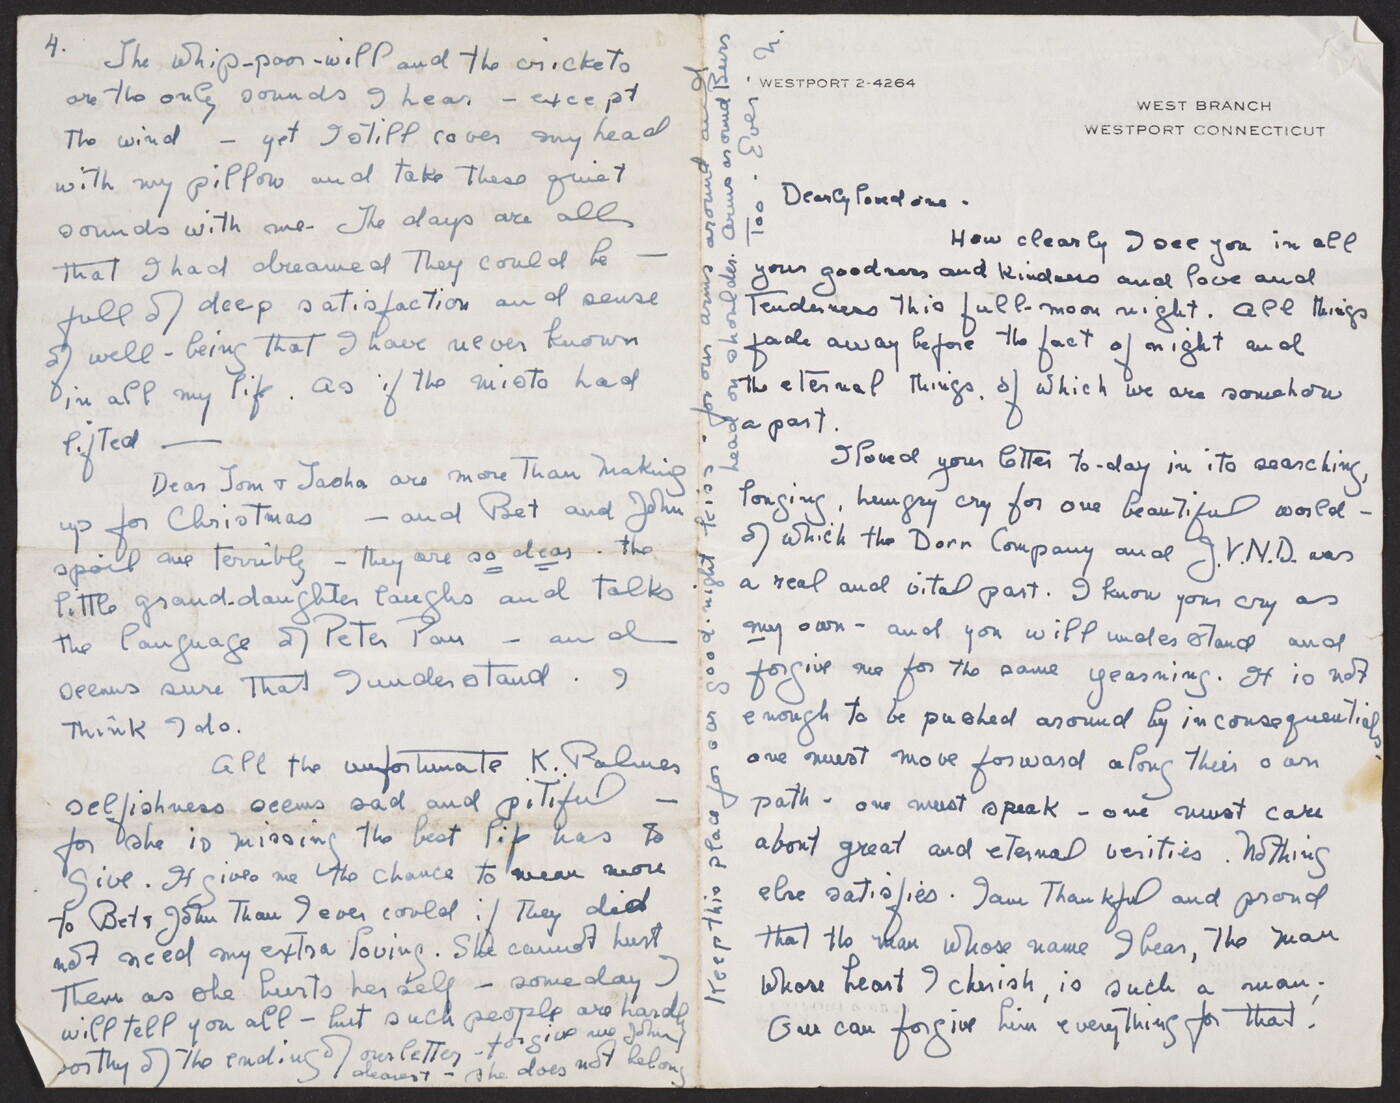 WESTPORT 2-4264
WEST BRANCH
WESTPORT CONNECTICUT
Dearly loved one.
How clearly I see you in all
your goodness and kindness and love and
Tenderness this full-moon night. All things
fade away before the fact of night and
the eternal things, of which we are somehow
a part.
I loved your letter to-day in its searching,
longing, hungry cry for one beautiful world -
of which the Dorn Company and J.V.N.D. was
a real and vital part. I know your cry as
my own - and you will understand and
forgive me for the same yearning. It is not
enough to be pushed around by inconsequentials,
one must move forward along their own
path - one must speak - one must care
about great and eternal verities. Nothing
else satisfies. I am Thankful and proud
that the man whose name I bear, the man
whose heart I cherish, is such a man;
One can forgive him everything for that.
4.
The whip-poor-will and the crickets
are the only sounds I hear - except
the wind - yet I still cover my head
with my pillow and take these quiet
sounds with me - The days are all
that I had dreamed They could be -
full of deep satisfaction and sense
of well-being that I have never known
in all my life. As if the mists had
lifted —
Dear Tom & Tasha are more Than making
up for Christmas - and Bet and John
spoil me terribly - they are so dear. The
little grand-daughter laughs and talks
the language of Peter Pan - and
seems sure that I understand. I
think I do.
All the unfortunate K. Palmer
selfishness seems sad and pitiful -
for she is missing the best life has to
give. It gives me the chance to mean more
to Bet & John Than I ever could if they did
not need my extra loving. She cannot hurt
them as she hurts herself - someday I
will tell you all - but such people are hardly
worthy of the ending of our letter - forgive me Johnny
dearest - she does not belong
Keep this place for our good-night kiss - for our arms around and
head on shoulder. Arms around Bears
Too. Ever -